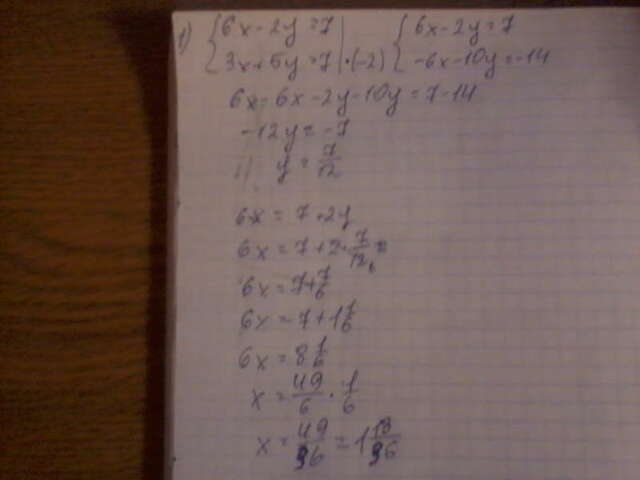 1) { 6x-2y=7 | { 6x-2y=7
3x+5y=7 | ·(-2) { -6x-10y=-14
6x-6x-2y-10y=7-14
-12y=-7
y=7/12
6x=7+2y
6x=7+2·7/12 6 =
6x=7+7/6
6x=7+1 1/6
6x=8 1/6
x=49/6·1/6
x=49/36=1 13/36